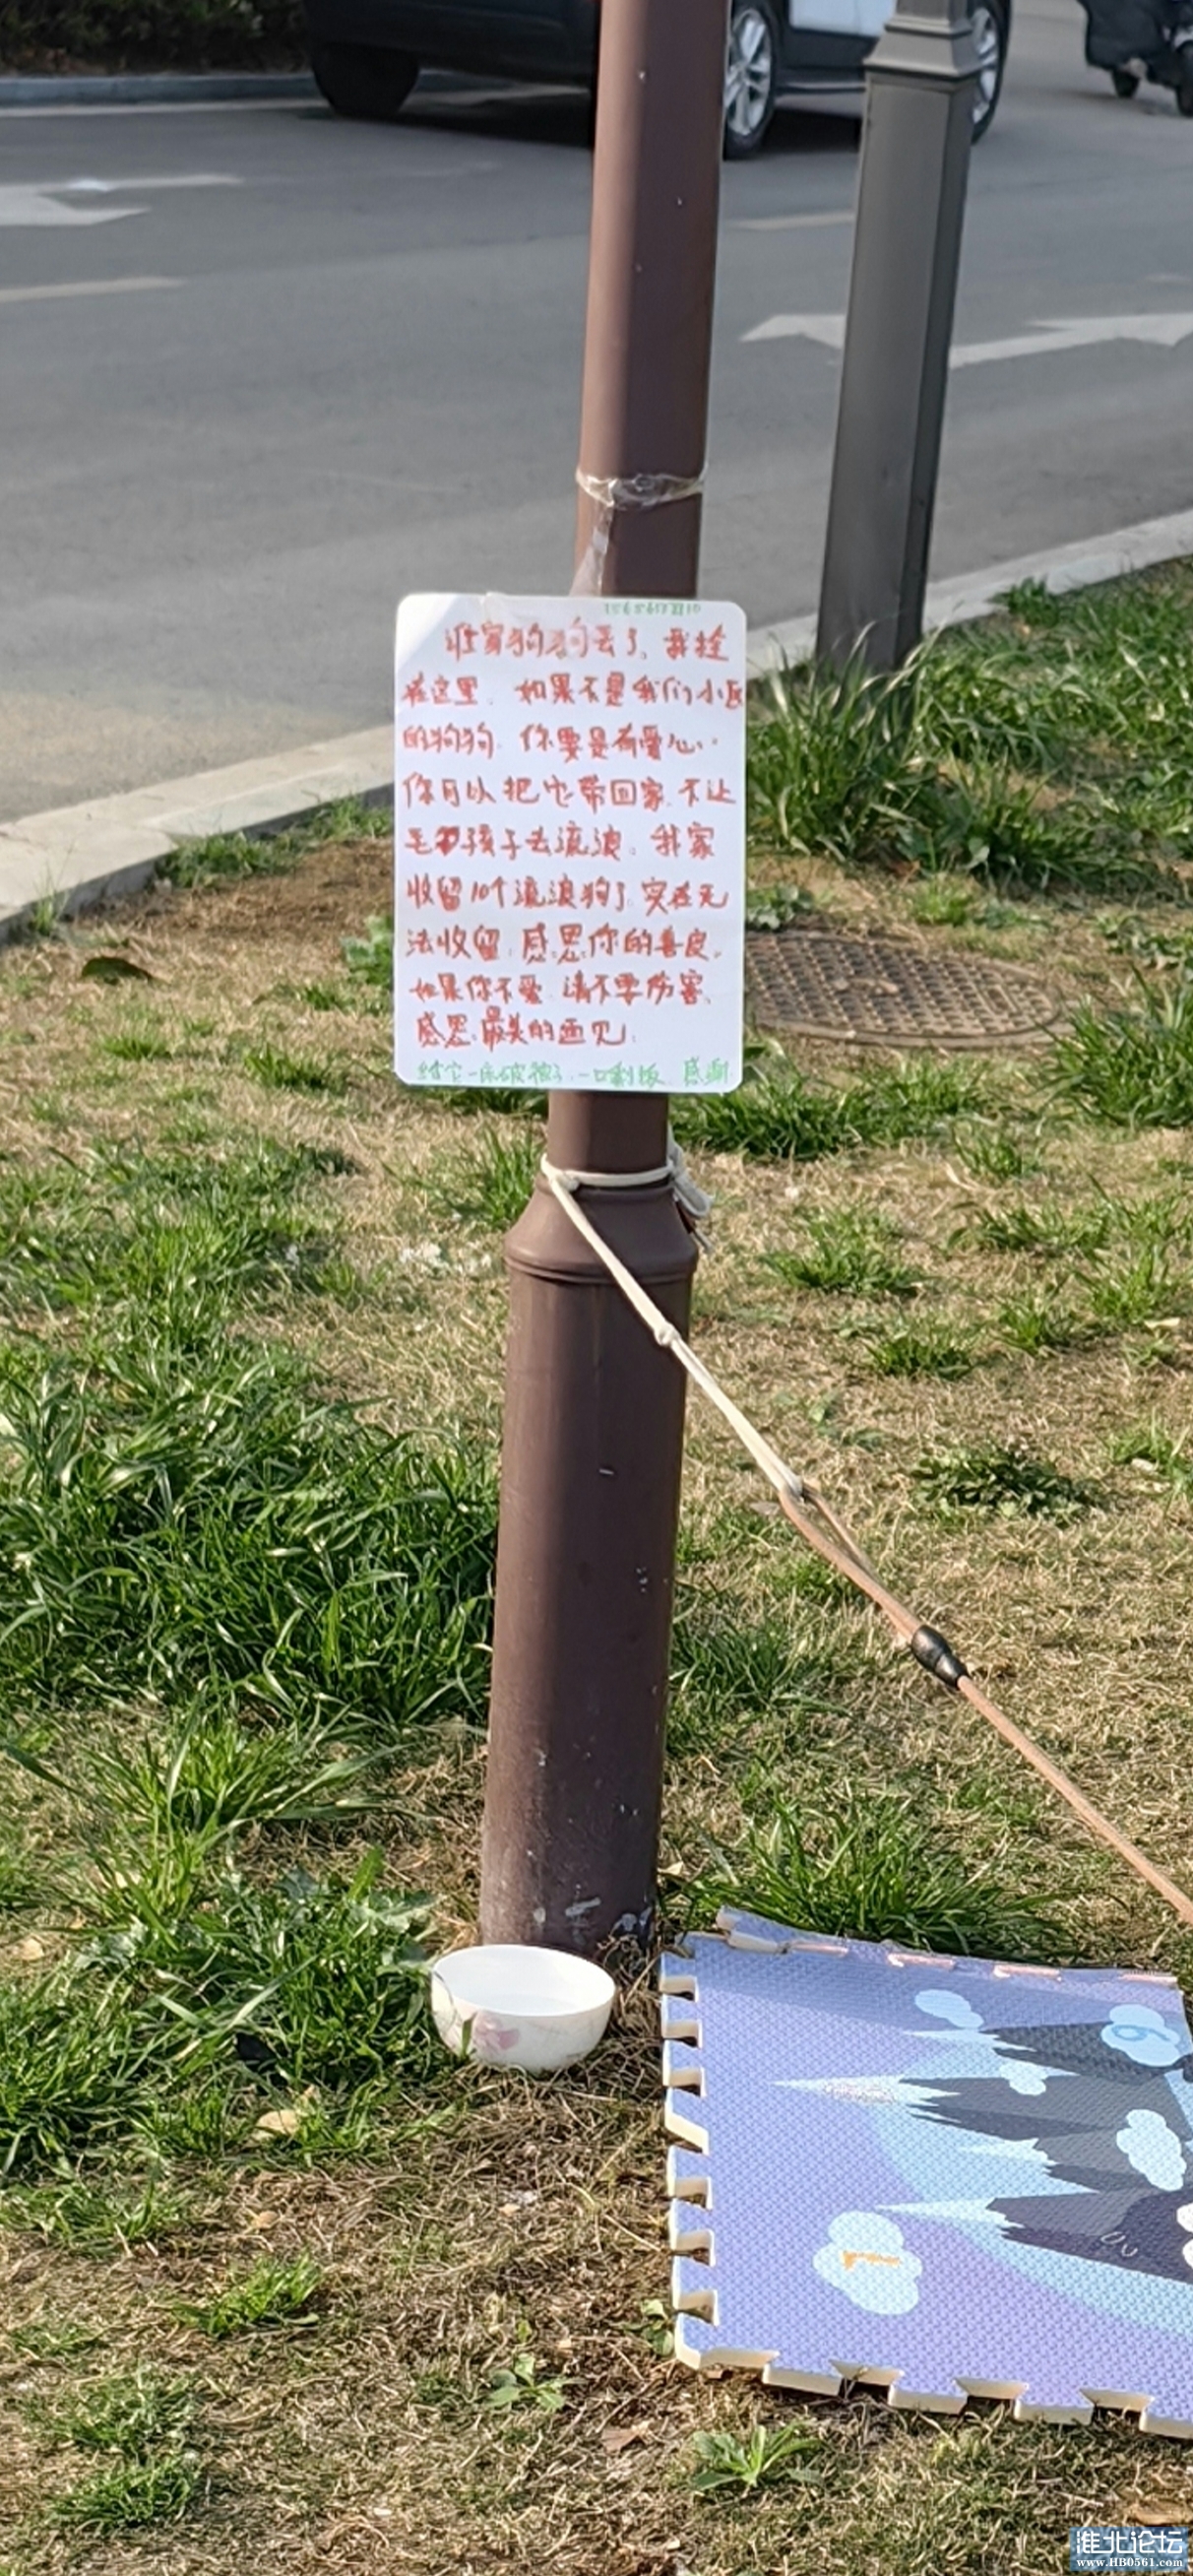 谁家狗狗丢了、我拴
在这里、如果不是我们小区
的狗狗、你要是有爱心、
你可以把它带回家、不让
毛孩子去流浪。我家
收留10个流浪狗了、实在无
法收留、感恩你的善良。
如果你不爱、请不要伤害、
感恩、最美的遇见。
给它一床破被子、一口剩饭、感谢
1
淮北论坛
www.HB0561.com